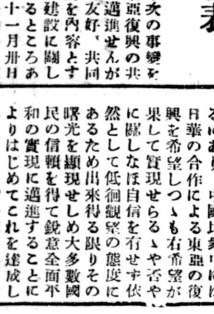 次の事變を
亞復興の共
邁進せんが
友好、共同
を內容とす
建設に關し
るところあ
十一月卅日
日華の合作による東亞の復
興を希望しつゝも右希望が
果して實現せらるゝや否や
に關しなほ自信を有せず依
然として低徊觀望の態度に
あるため出來得る限りその
曙光を顯現せしめ大多數國
民の信賴を得て銳意全面平
和の實現に邁進することに
よりはじめてこれを達成し